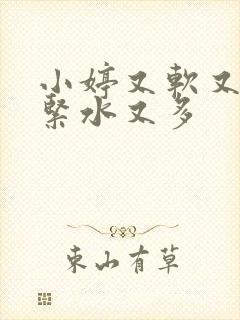 小婷又軟又
緊水又多
東山有草